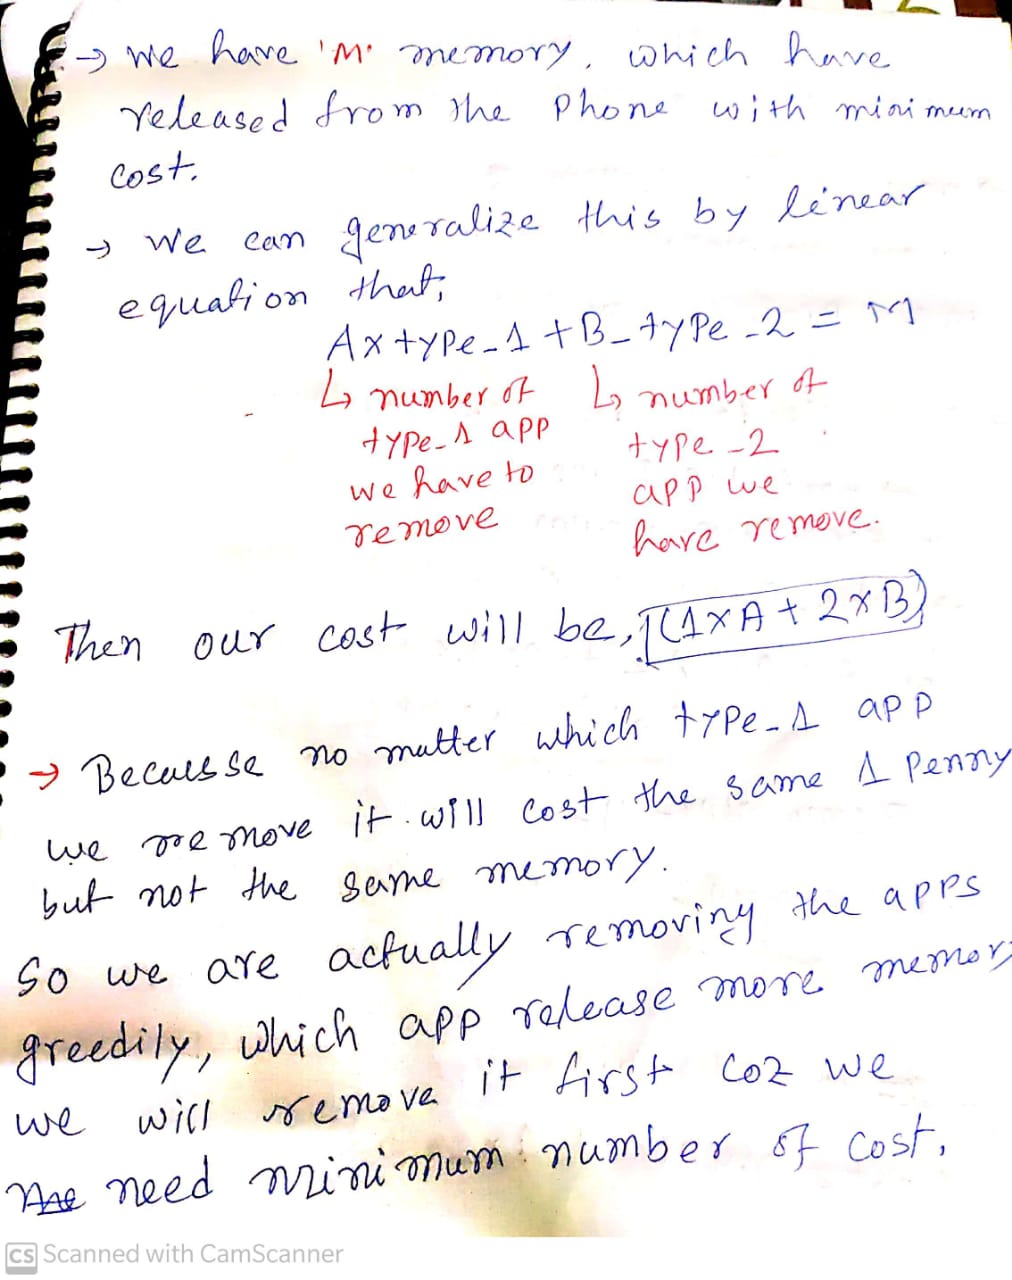 → we have 'M' memory, which have
released from the phone with minimum
cost.
→ we can generalize this by linear
equation that;
A x type_1 + B_type_2 = M
↳ number of
type_1 app
we have to
remove
↳ number of
type_2
app we
have remove.
Then our cost will be, (1xA + 2xB)
→ Becausse no matter which type_1 app
we remove it will cost the same 1 penny
but not the same memory.
So we are actually removing the apps
greedily, which app release more memory
we will remove it first coz we
need minimum number of cost.
CS Scanned with CamScanner